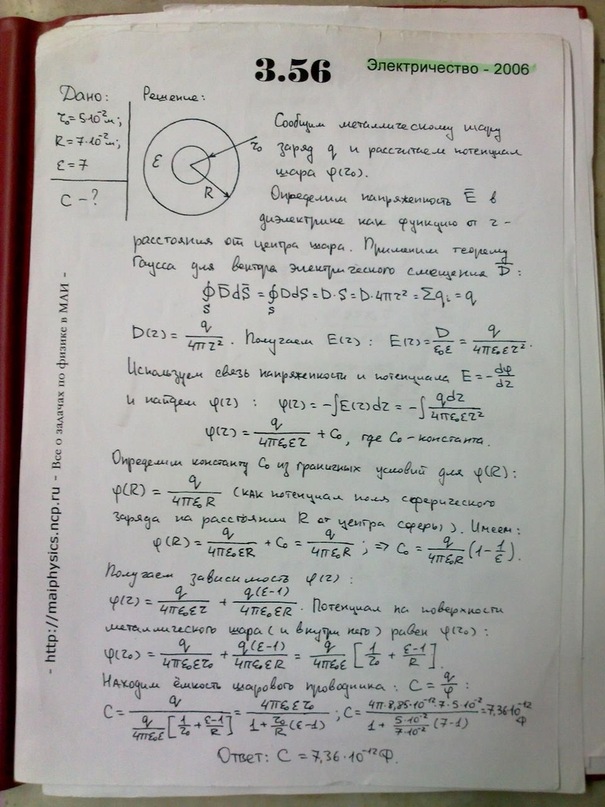 3.56
Электричество - 2006
Дано:
r₀=5·10⁻²м;
R=7·10⁻²м;
ε=7
C-?
Решение:
ε
r₀
R
Сообщим металлическому шару
заряд q и рассчитаем потенциал
шара φ(r₀).
Определим напряженность E̅ в
диэлектрике как функцию от r-
расстояния от центра шара. Применим теорему
Гаусса для вектора электрического смещения D̅:
∮D̅dS̅ = ∮DdS = D·S = D·4πr² = Σqᵢ = q
S S
D(r) = q/(4πr²). Получаем E(r): E(r) = D/(ε₀ε) = q/(4πε₀εr²).
Используем связь напряженности и потенциала E = -dφ/dr
и найдем φ(r): φ(r) = -∫E(r)dr = -∫qdr/(4πε₀εr²)
φ(r) = q/(4πε₀εr) + C₀, где C₀-константа.
Определим константу C₀ из граничных условий для φ(R):
φ(R) = q/(4πε₀R) (как потенциал поля сферического
заряда на расстоянии R от центра сферы). Имеем:
φ(R) = q/(4πε₀εR) + C₀ = q/(4πε₀R); ⇒ C₀ = q/(4πε₀R)(1-1/ε).
Получаем зависимость φ(r):
φ(r) = q/(4πε₀εr) + q(ε-1)/(4πε₀εR). Потенциал на поверхности
металлического шара (и внутри него) равен φ(r₀):
φ(r₀) = q/(4πε₀εr₀) + q(ε-1)/(4πε₀εR) = q/(4πε₀ε)[1/r₀ + (ε-1)/R].
Находим ёмкость шарового проводника: C = q/φ:
C = q/(q/(4πε₀ε)[1/r₀ + (ε-1)/R]) = 4πε₀εr₀/(1 + r₀/R(ε-1)); C = 4π·8,85·10⁻¹²·7·5·10⁻²/(1 + 5·10⁻²/(7·10⁻²)(7-1)) = 7,36·10⁻¹² Ф
Ответ: C = 7,36·10⁻¹²Ф.
- http://maiphysics.ncp.ru - Все о задачах по физике в МАИ -